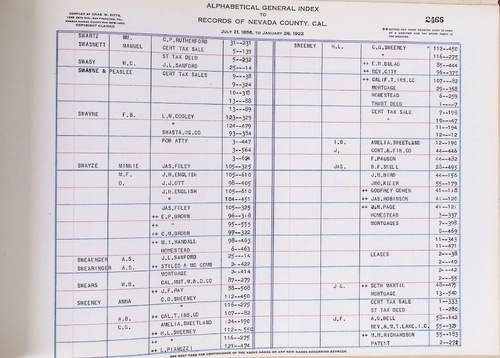 COMPILED BY CHAS. N. KITTS,
COPYRIGHT CLAIMED
ALPHABETICAL GENERAL INDEX
TO
RECORDS OF NEVADA COUNTY, CAL.
JULY 21, 1856, TO JANUARY 26, 1922
2466
SWARTZ WM. C.P.RUTHERFORD 31--231
SWASNETT MANUEL CERT TAX SALE 5--139
ST TAX DEED 5--232
SWASY M.C. J.L.SANFORD 25---14
SWAYNE & PEASLEE CERT TAX SALES 9---38
9--324
10--318
13---88
13---89
SWAYNE F.B. L.N.COOLEY 123--329
" 124--479
SHASTA,CO 93--384
POW ATTY 3--447
3--564
3--624
SWAYZE MINNIE JAS.FOLEY 105--325
M.F. J.H.ENGLISH 105--610
O. J.J.OTT 98--405
J.H.ENGLISH 105--610
" 104--451
JAS.FOLEY 105--325
++ E.P.BROWN 96--318
++ " 95--555
++ C.M.BROWN 97--322
++ W.I.RANDALL 98--463
HOMESTEAD 6--463
SWEAENGER A.S. J.L.SANFORD 25---14
SWEARINGER A.S. ++ STILES & MC COMB 2--422
MORTGAGE 2--414
SWEARS W.B. CAL.MUT.M.& D.CO 87--279
++ J.F.RAY 88--508
SWEENEY ANNA C.G.SWEENEY 112--450
" 116--275
A.B. ++ CALIF.T.INS.CO 107---82
C.G. AMELIA.SWEETLAND 124--190
++ H.L.SWEENEY 112--550
++ " 116--275
++ L.PIANEZZI 121--474
SWEENEY H.L. C.G.SWEENEY 112--450
" 116--275
++ E.R.DOLAO 85--444
++ NEV.CITY 96--375
++ CALIF.T.INS.CO 107---82
MORTGAGE 29--368
HOMESTEAD 6--259
TRUST DEED 1----7
CERT TAX SALE 7--198
" 10---47
11--194
12---12
I.B. AMELIA.SWEETLAND 12--190
J. CONT.& FIN.CO 44--446
F.PAUSON 44--482
JAS. B.F.SNELL 28--495
J.H.BIRD 44--156
JNO.KIZER 55--179
++ GODFREY COHEN 41--118
++ JAS.ROBINSON 41--120
++ G.N.PAGE 41--121
HOMESTEAD 3--337
MORTGAGES 7--398
8--469
11--343
11--471
LEASES 2---38
2---42
2---55
J.C. ++ SETH MARTIN 48--475
MORTGAGE 13--540
CERT TAX SALE 1--333
ST TAX DEED 1--280
J.F. A.G.BELL 58--142
NEV.& M.T.LAKE.I.C. 55--328
++ M.H.RICHARDSON 55--183
PATENT 2--272
SEE NEXT PAGE FOR CONTINUANCE OF THE ABOVE NAMES OR ANY NEW NAMES OCCURRING BETWEEN